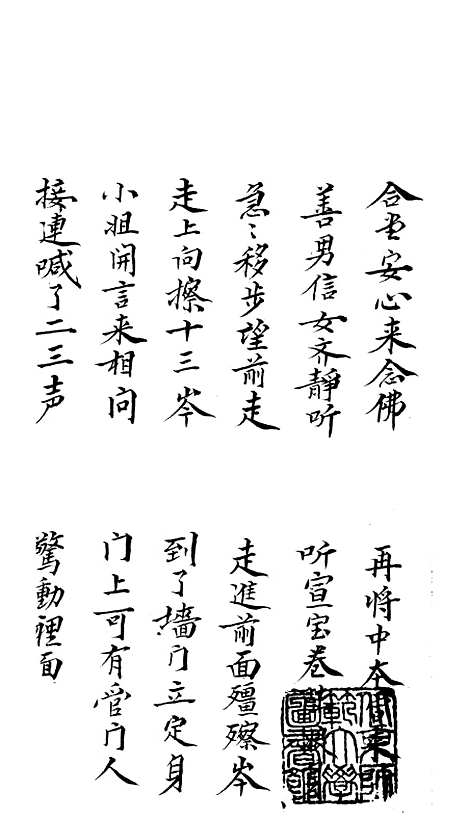 合堂安心来念佛
再将中本
善男信女齐静听
听宣宝卷
急〻移步望前走
走進前面殭殩岑
走上向擦十三岑
到了墻门立定身
小姐開言来相问
门上可有管门人
接連喊了二三声
驚動裡面
東師
範大學
圖書館